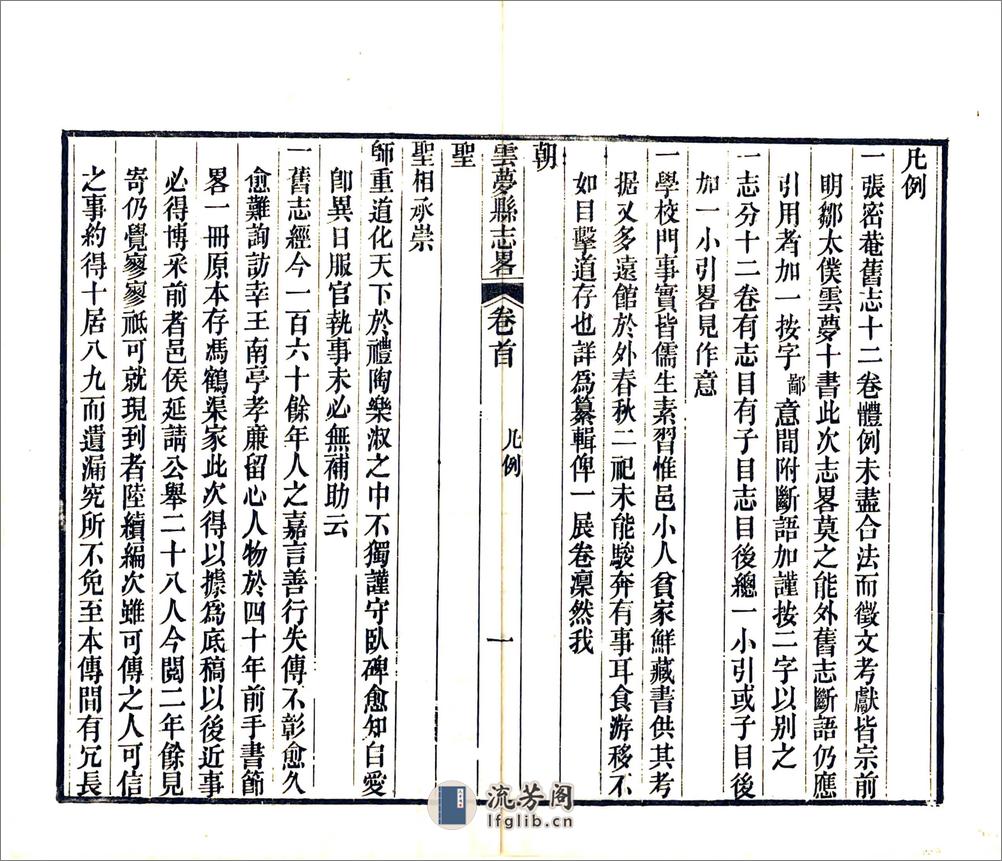 凡例
一張密菴舊志十二卷體例未盡合法而徵文考獻皆宗前
明鄒太僕雲夢十書此次志畧莫之能外舊志斷語仍應
引用者加一按字鄙意間附斷語加謹按二字以別之
一志分十二卷有志目有子目志目後總一小引或子目後
加一小引畧見作意
一學校門事實皆儒生素習惟邑小人貧家鮮藏書供其考
据又多遠館於外春秋二祀未能駿奔有事耳食游移不
如目擊道存也詳為纂輯俾一展卷凜然我
朝
雲夢縣志畧 卷首 凡例 一
聖
聖相承崇
師重道化天下於禮陶樂淑之中不獨謹守臥碑愈知自愛
卽異日服官執事未必無補助云
一舊志經今一百六十餘年人之嘉言善行失傳不彰愈久
愈難詢訪幸王南亭孝廉留心人物於四十年前手書節
畧一冊原本存馮鶴渠家此次得以據為底稿以後近事
必得博采前者邑侯延請公舉二十八人今閱二年餘見
寄仍覺寥寥祇可就現到者陸續編次雖可傳之人可信
之事約得十居八九而遺漏究所不免至本傳間有冗長
流芳阁
lfglib.cn